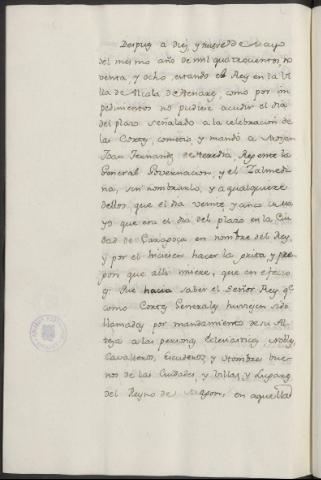 Despues a diez, y nueve de Mayo
del mismo año de mil quatrocientos, no
venta, y ocho, estando el Rey en la Vi
lla de Alcala de Henares, como por im
pedimentos no pudiese acudir el dia
del plazo señalado a la celebracion de
las Cortes, cometió, y mandó a Mosen
Joan Fernandez de Heredia, Regente la
General Governacion, y el Zalmedi
na, sin nombrarlo, y a qualquiere
dellos, que el dia veinte años de Ma
yo que era el dia del plazo en la Ciu
dad de Caragoça en nombre del Rey,
y por el hiciesen hacer la porrta, y pro
posn que alli hiciere, que en efecto
fue hacia saber el Señor Rey qe
como Cortes Generales huviesen sido
llamadas por mandamiento de su Al
teza a las personas Eclesiasticas, Nobles,
Cavalleros, Escuderos, y Hombres bue
nos de las Ciudades, y Villas, y Lugares
del Reyno de Aragon, en aquella